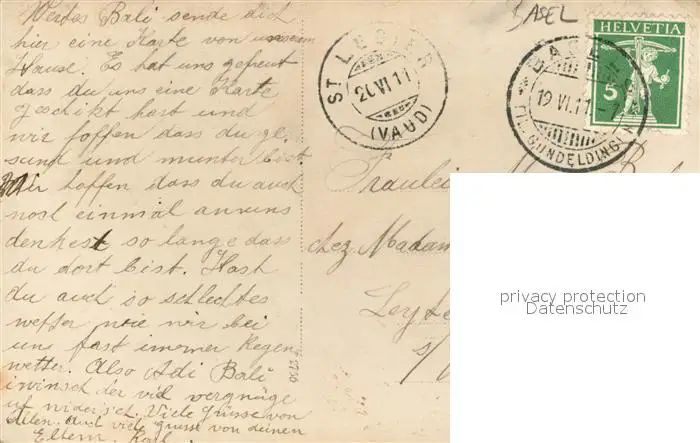 Wertes Bali sende dich
hier eine Karte von unserm
Hause. Es hat uns gefreut
dass du uns eine Karte
geschikt hast und
wir hoffen dass du ge-
sund und munter bist.
Wir hoffen dass du auch
noch einmal an uns
denkest so lange dass
du dort bist. Hast
du auch so schlechtes
wetter wie wir bei
uns fast immer Regen
wetter. Also Adi Bali
i winsch der vil vergnüge
uf widerseh. Viele Grüsse von
Allen. Auch viele grüsse von deinen
Eltern.
BASEL
HELVETIA
5
ST LEGIER
20 VI 11
(VAUD)
BASEL
19 VI 11 -7
GUNDELDING
Fräulein
chez Madam
Leyte
s/
privacy protection
Datenschutz